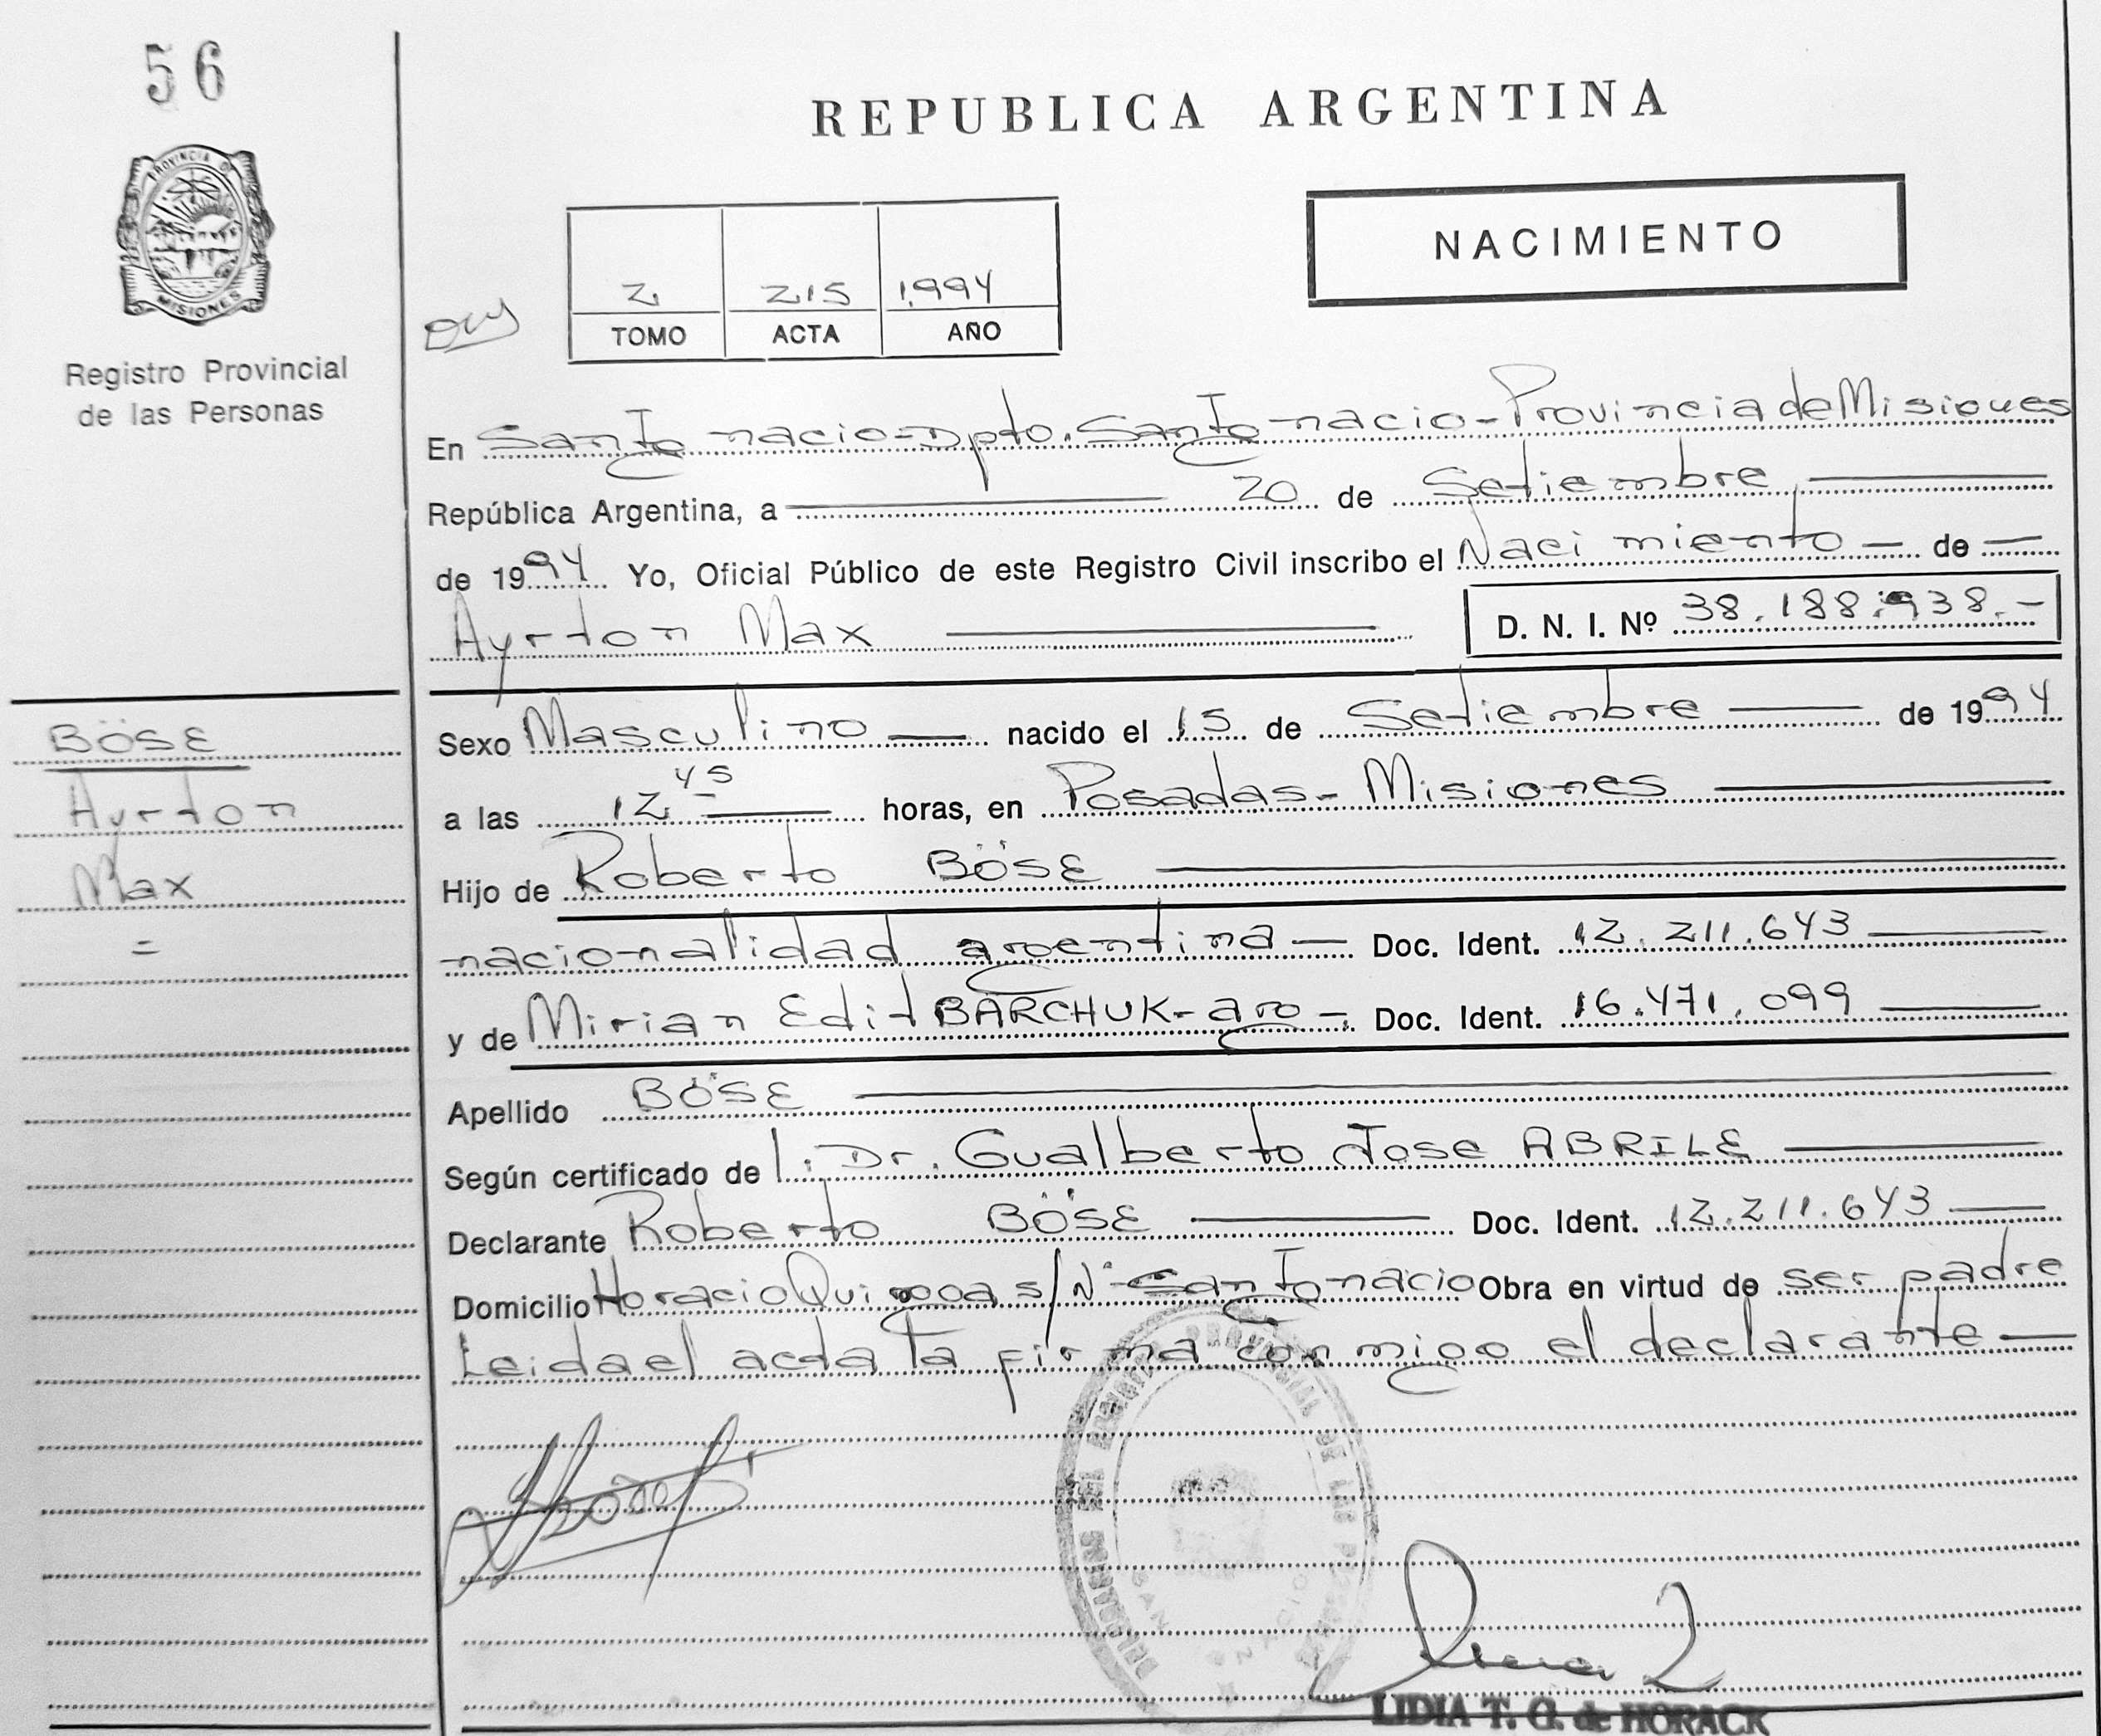 56
PROVINCIA DE
MISIONES
Registro Provincial
de las Personas
REPUBLICA ARGENTINA
NACIMIENTO
2 215 1994
TOMO ACTA AÑO
En San Ignacio - Dpto. San Ignacio - Provincia de Misiones
República Argentina, a 20 de Setiembre
de 1994 Yo, Oficial Público de este Registro Civil inscribo el Nacimiento - de -
Ayrton Max D. N. I. Nº 38.188.938.-
BÖSE
Ayrton
Max
=
Sexo Masculino nacido el 15 de Setiembre de 1994
a las 12 45 horas, en Posadas - Misiones
Hijo de Roberto BÖSE
nacionalidad argentina Doc. Ident. 12.211.643
y de Mirian Edit BARCHUK - arg - Doc. Ident. 16.471.099
Apellido BÖSE
Según certificado de l. Dr. Gualberto Jose ABRILE
Declarante Roberto BÖSE Doc. Ident. 12.211.643
Domicilio Horacio Quiroga s/Nº San Ignacio Obra en virtud de ser padre
Leida el acta la firma conmigo el declarante
SAN IGNACIO
LIDIA T. G. de HORACK